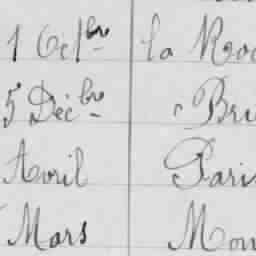 1 Oct^bre la Roc
5 Déc^bre " Bri
Avril Paris
Mars Mon